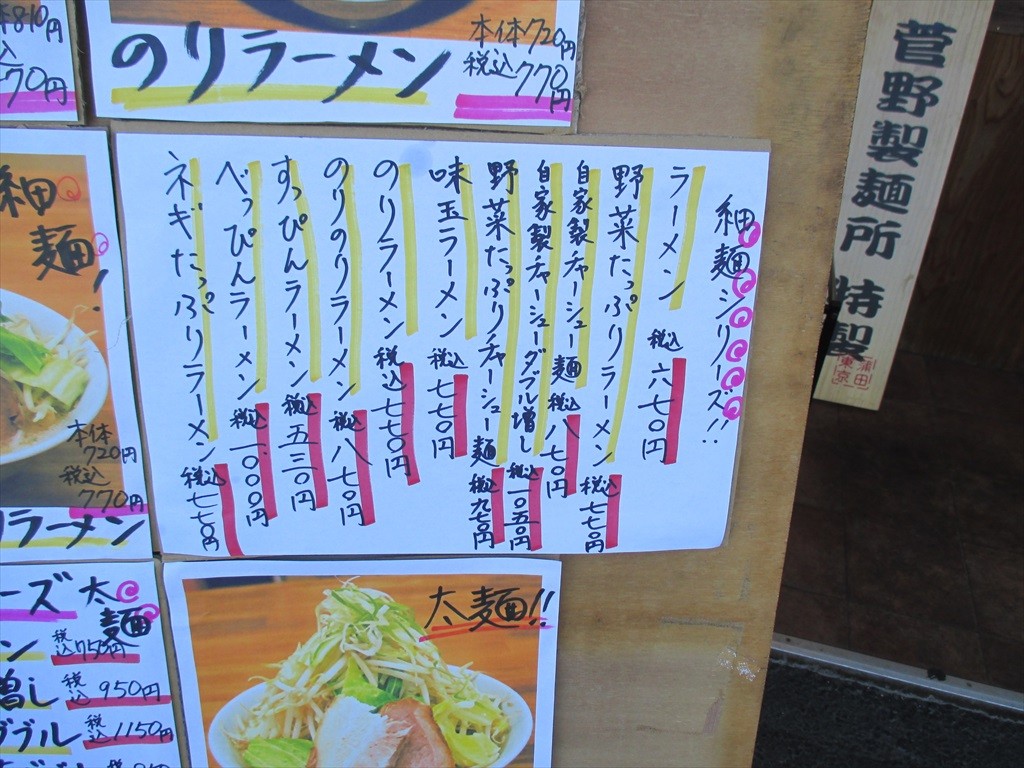 本体810円
770円
のりラーメン
本体720円
税込770円
菅野製麺所 特製
蒲田
東京
細麺!
本体
720円
税込
770円
りラーメン
細麺シリーズ!!
ラーメン 税込 六七〇円
野菜たっぷりラーメン 税込 七七〇円
自家製チャーシュー麺 税込 八七〇円
自家製チャーシューダブル増し 税込 一〇五〇円
野菜たっぷりチャーシュー麺 税込 九七〇円
味玉ラーメン 税込 七七〇円
のりラーメン 税込 七七〇円
のりのりラーメン 税込 八七〇円
すっぴんラーメン 税込 五三〇円
べっぴんラーメン 税込 一〇〇〇円
ネギたっぷりラーメン 税込 七七〇円
ーズ 太麺
ン 税込750円
増し 税込950円
ダブル 税込1150円
太麺!!